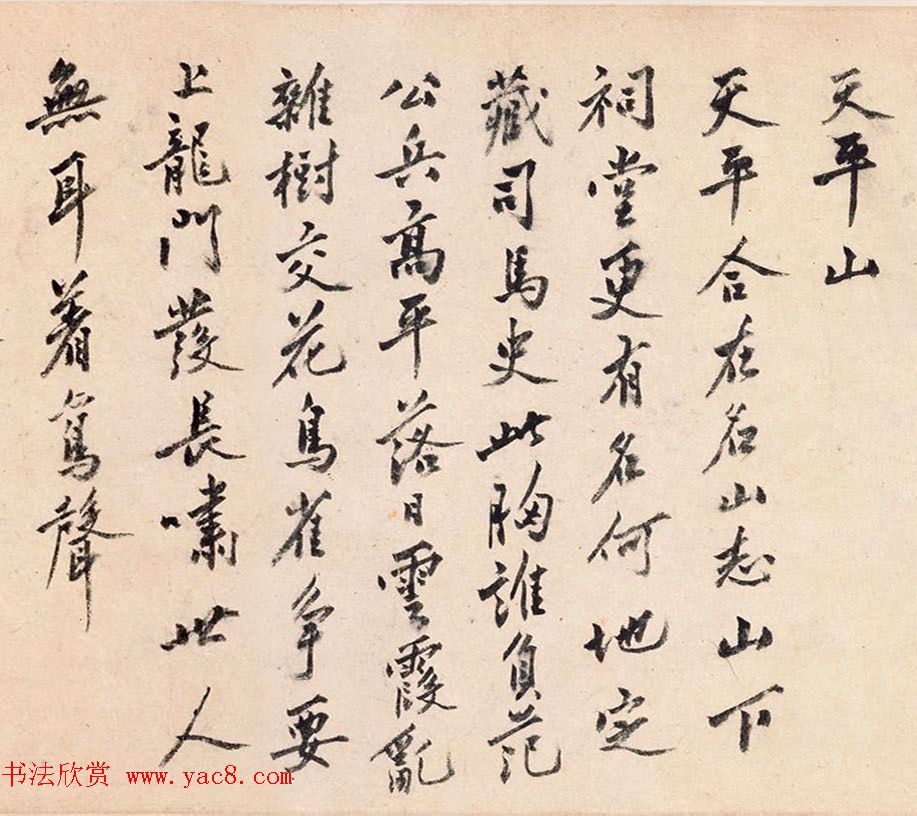 天平山
天平合在名山志山下
祠堂更有名何地定
藏司馬史此胸誰負范
公兵高平落日雲霞亂
雜樹交花鳥雀爭要
上龍門發長嘯世人
無耳着鸞聲
书法欣赏 www.yac8.com